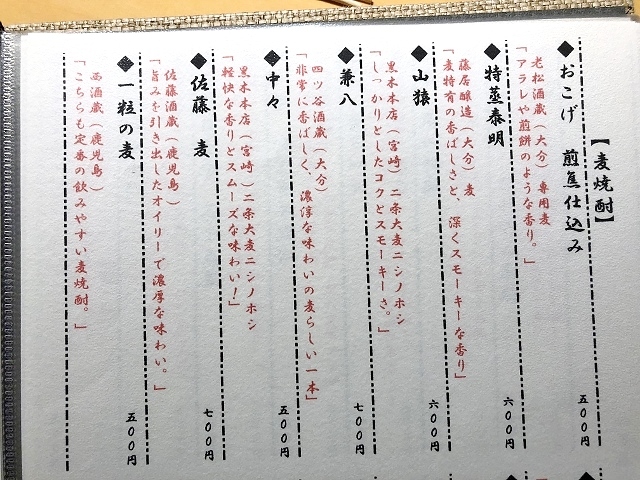 【麦焼酎】
◆おこげ 煎焦仕込み 五〇〇円
老松酒蔵(大分)専用麦
「アラレや煎餅のような香り。」
◆特蒸泰明 六〇〇円
藤居醸造(大分)麦
「麦特有の香ばしさと、深くスモーキーな香り」
◆山猿 六〇〇円
黒木本店(宮崎)二条大麦ニシノホシ
「しっかりとしたコクとスモーキーさ。」
◆兼八 七〇〇円
四ツ谷酒蔵(大分)
「非常に香ばしく、濃淳な味わいの麦らしい一本」
◆中々 五〇〇円
黒木本店(宮崎)二条大麦ニシノホシ
「軽快な香りとスムーズな味わい!」
◆佐藤 麦 七〇〇円
佐藤酒蔵(鹿児島)
「旨みを引き出したオイリーで濃厚な味わい。」
◆一粒の麦 五〇〇円
西酒蔵(鹿児島)
「こちらも定番の飲みやすい麦焼酎。」